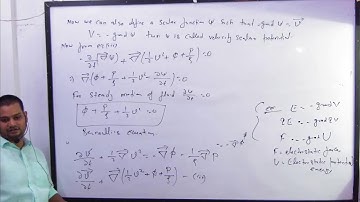 Now we can also define a scalar function ψ such that -grad ψ = \vec{v}
V = -grad ψ then ψ is called velocity scalar potential.
Now from eq
-∂/∂t(\vec{∇}ψ) + \vec{∇}(½v² + φ + P/ρ) = 0
⇒ \vec{∇}(φ + P/ρ + ½v² - ∂ψ/∂t) = 0
For steady motion of fluid ∂ψ/∂t = 0
φ + P/ρ + ½v² = 0
Bernoullis equation
∂\vec{v}/∂t + ½\vec{∇}v² = -\vec{∇}φ - 1/ρ \vec{∇}P
∂\vec{v}/∂t + \vec{∇}(½v² + φ + P/ρ) -
E = -grad V
qE = -grad qV
F = -grad U
F = electrostatic force
U = Electrostatic potential
energy